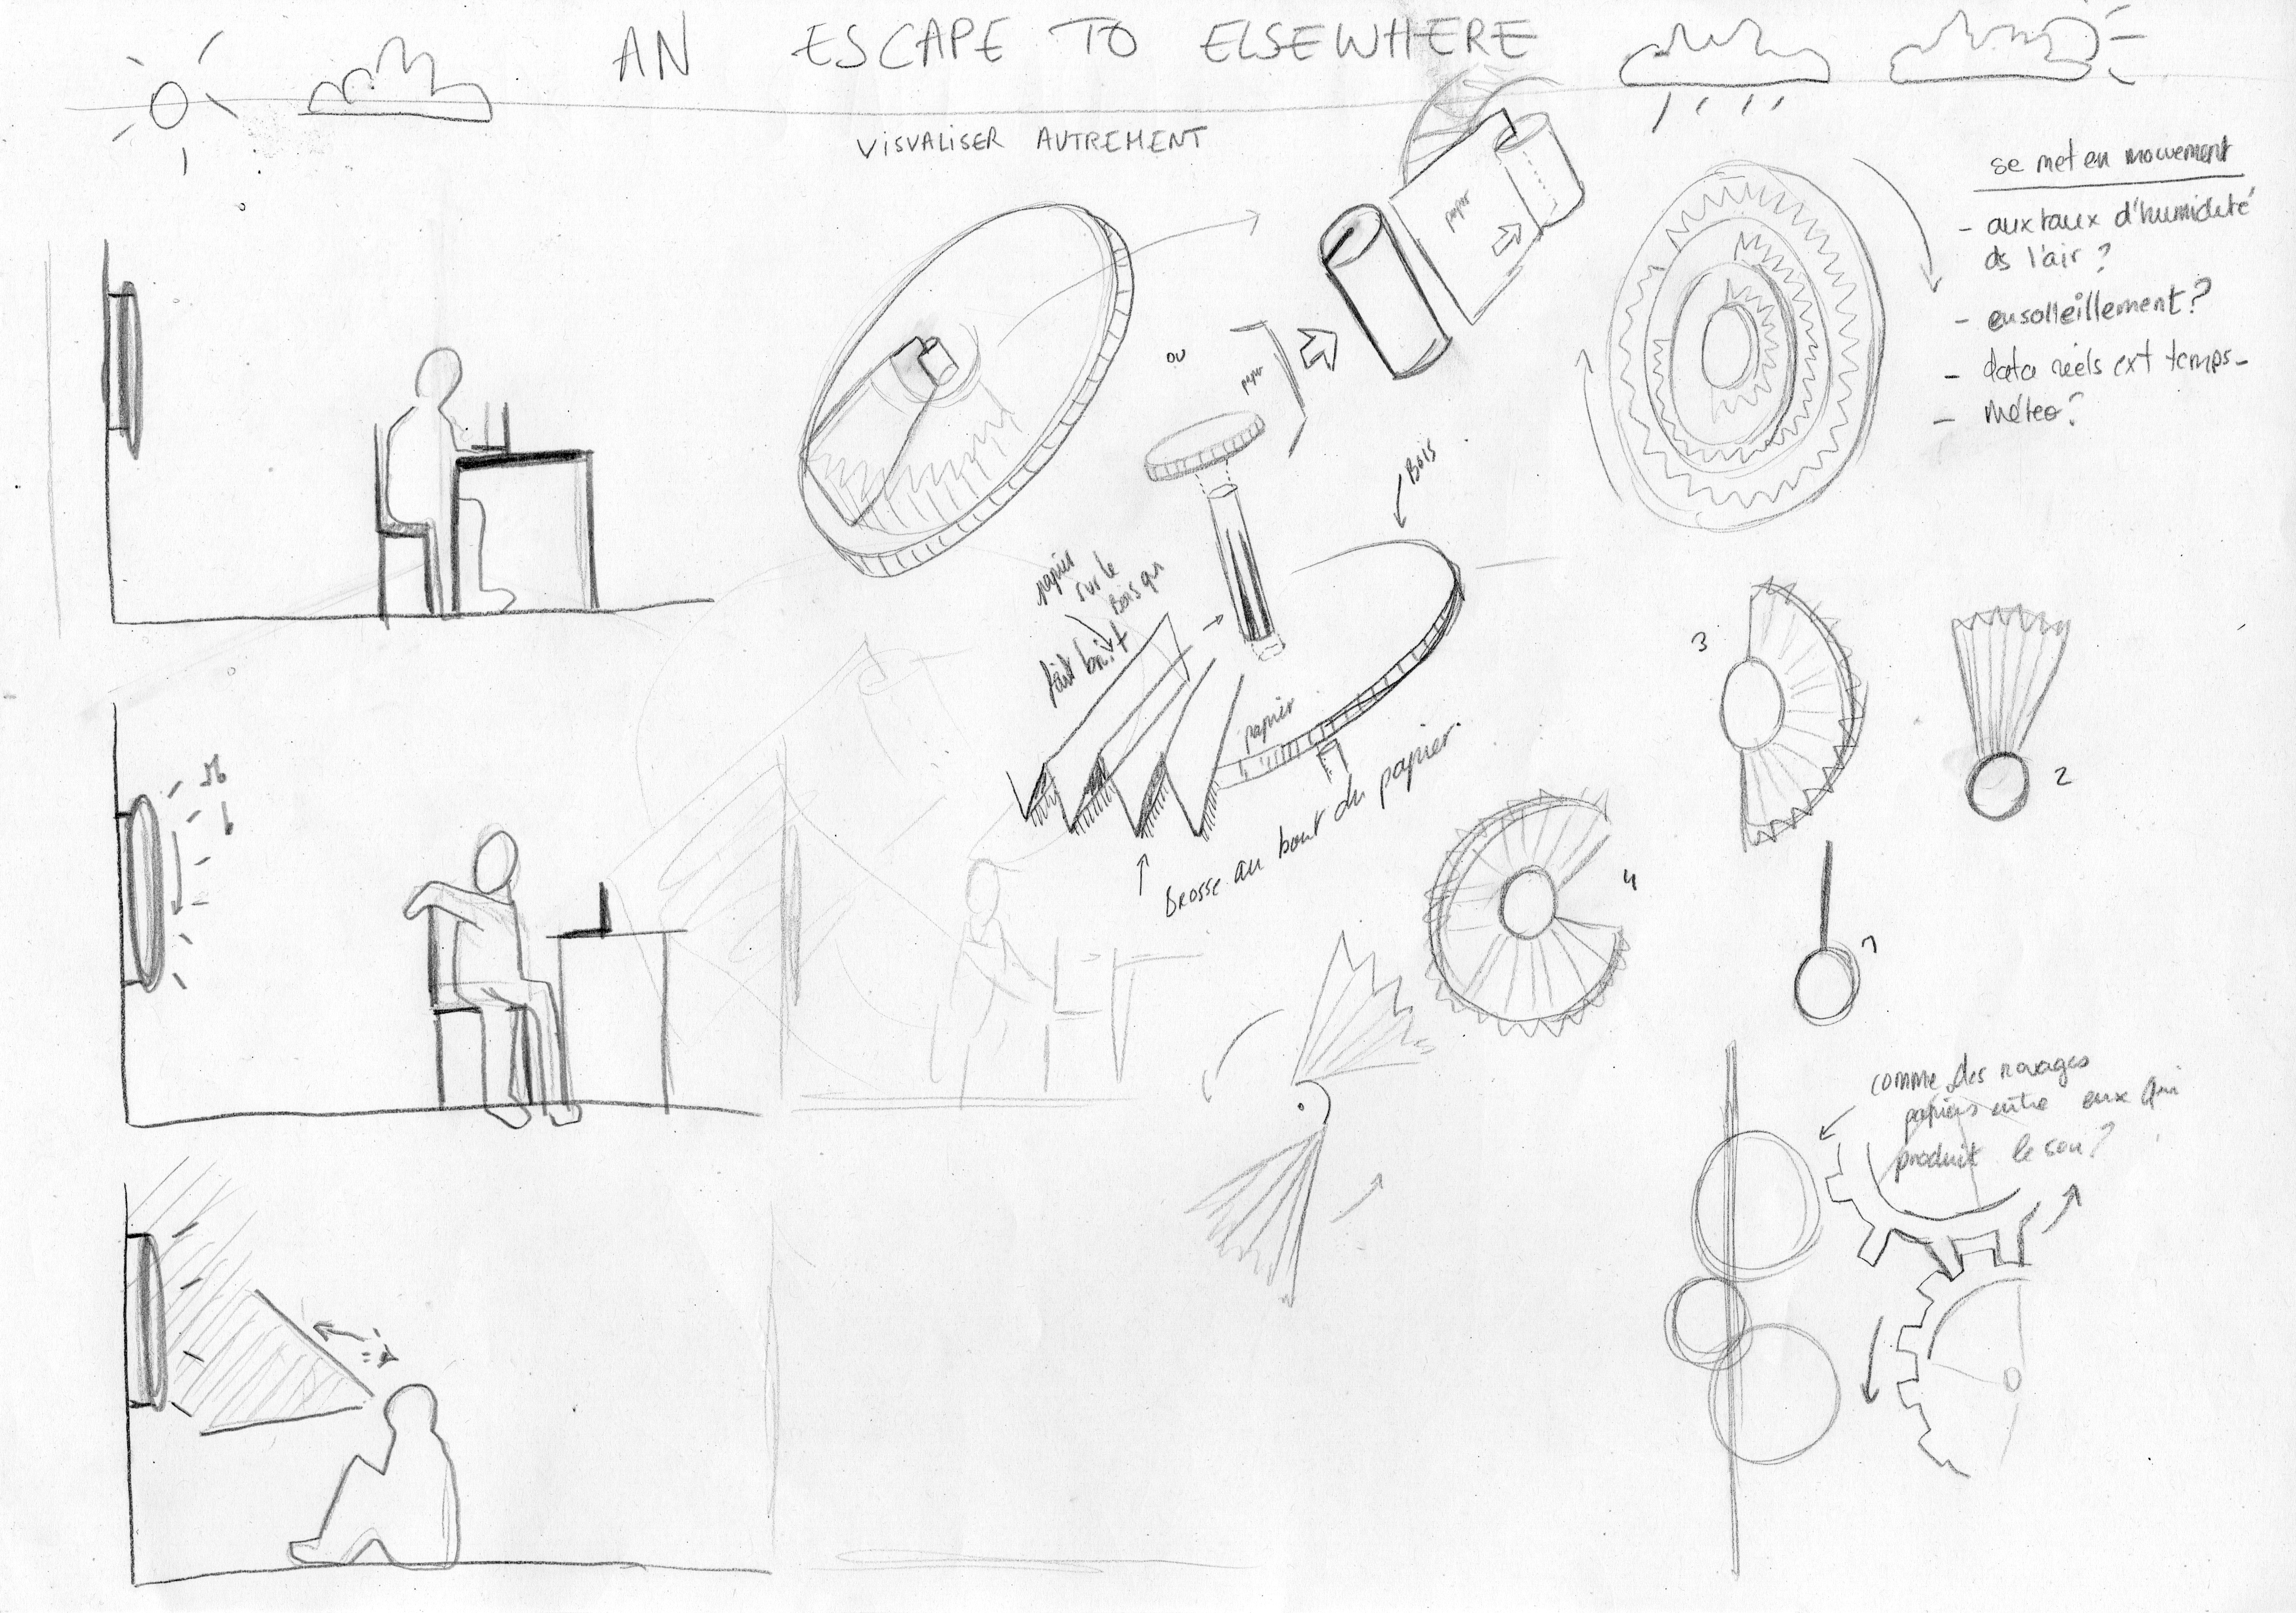 AN ESCAPE TO ELSEWHERE
VISUALISER AUTREMENT
se met en mouvement
- aux taux d'humidité
ds l'air ?
- ensolleillement ?
- data réels ext temps -
- Méteo ?
papier
ou
papier
Bois
papier
sur le
Bois qui
fait bruit
papier
brosse au bout du papier
3
2
4
1
comme des rouages
papiers entre eux qui
produit le son ?